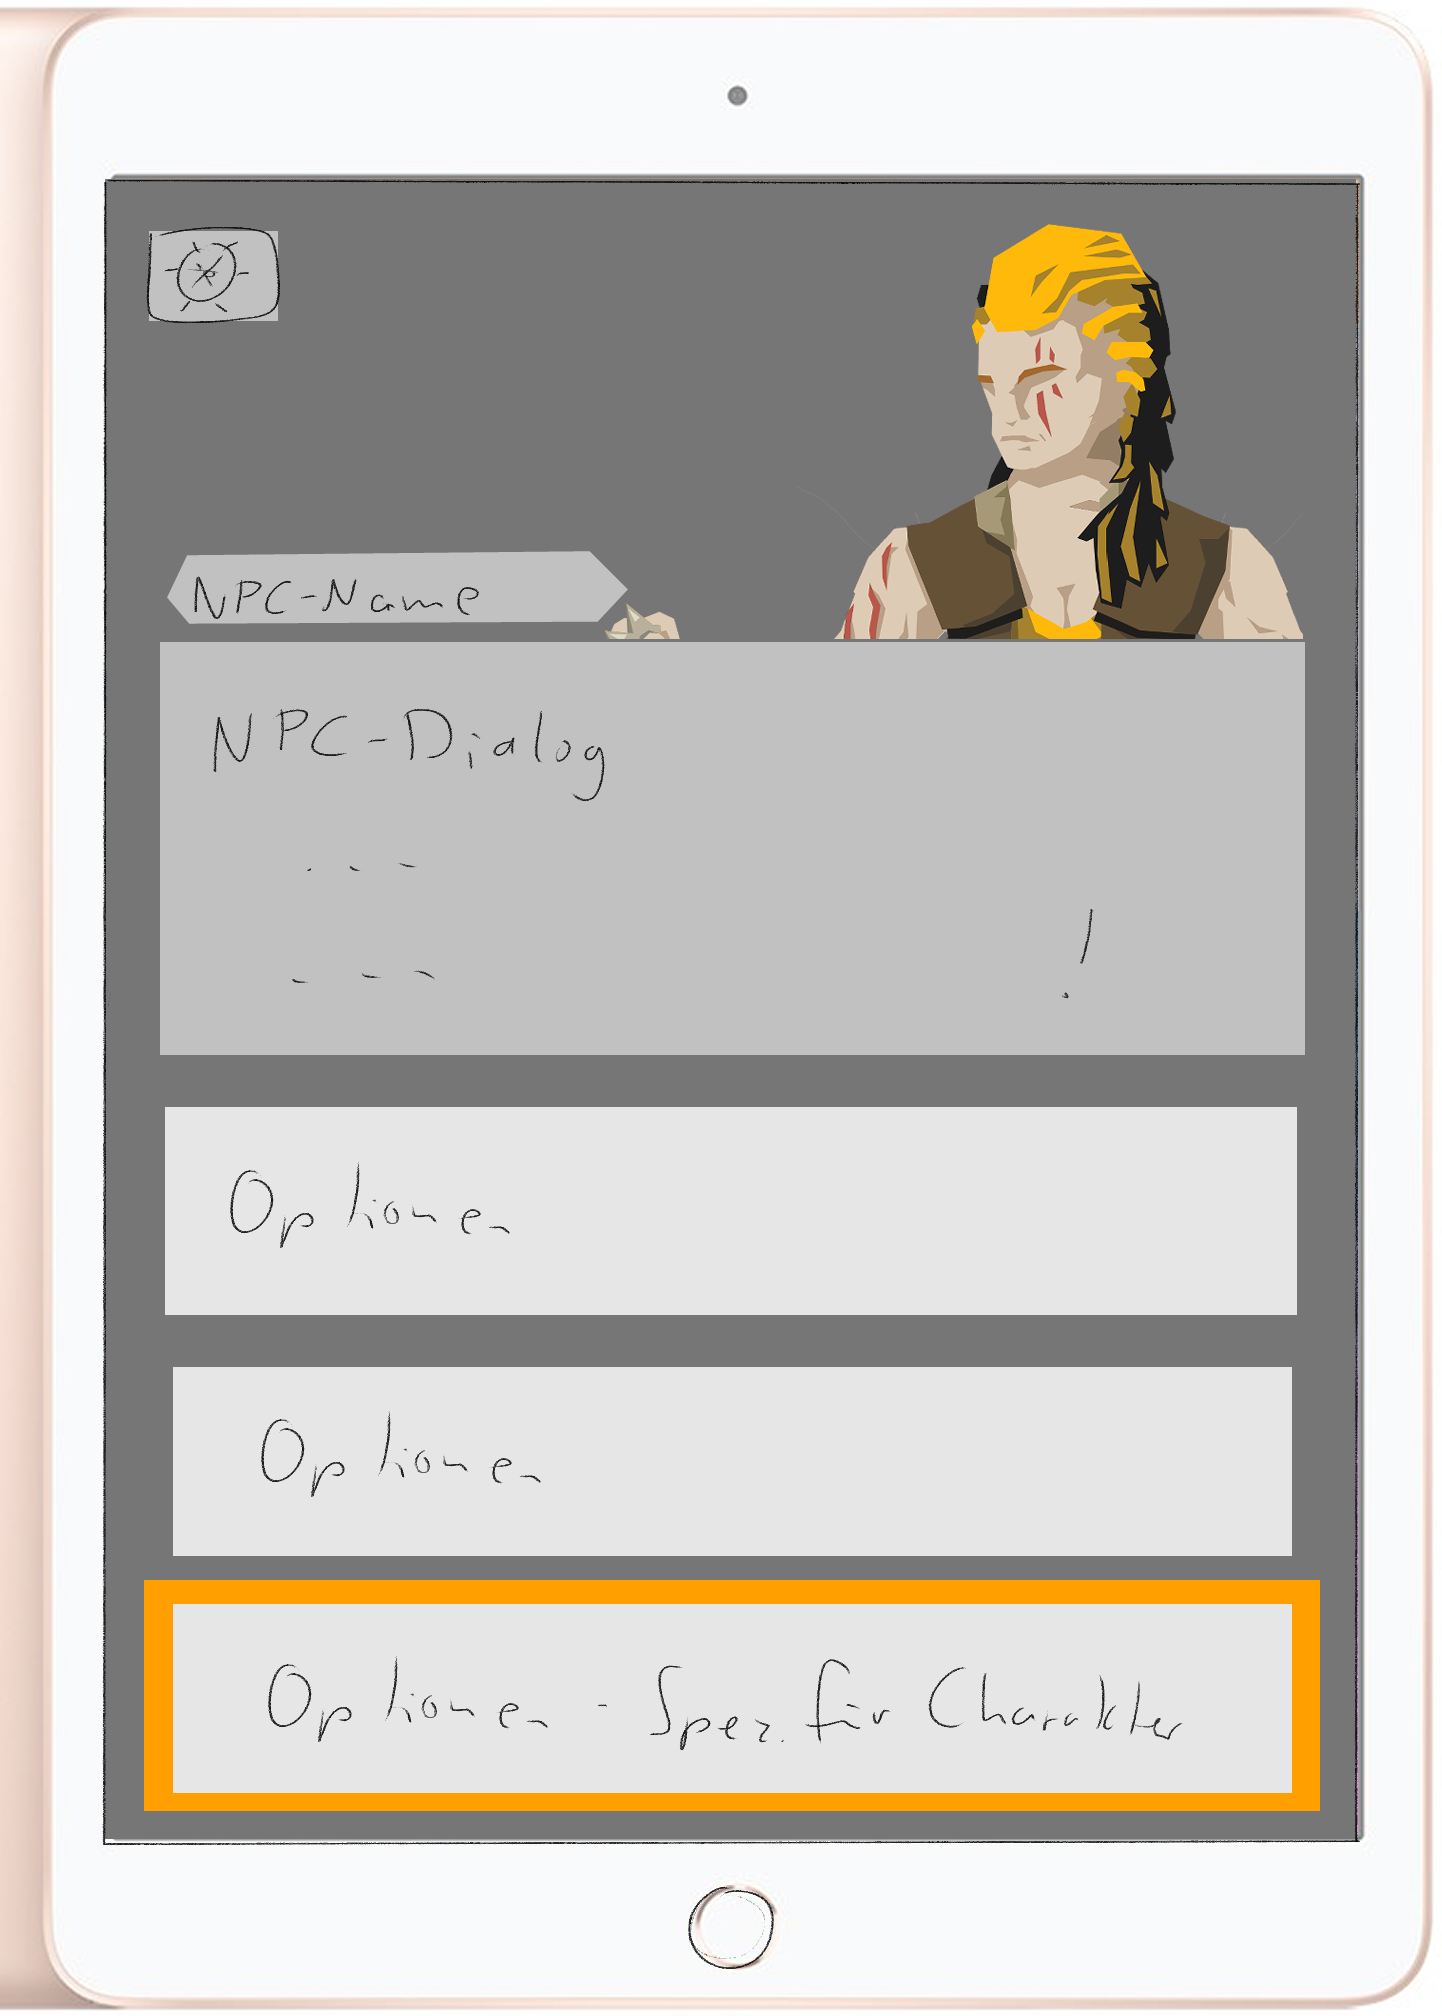 NPC-Name
NPC-Dialog
- - -
- - - !
Optionen
Optionen
Optionen - Spez. für Charakter